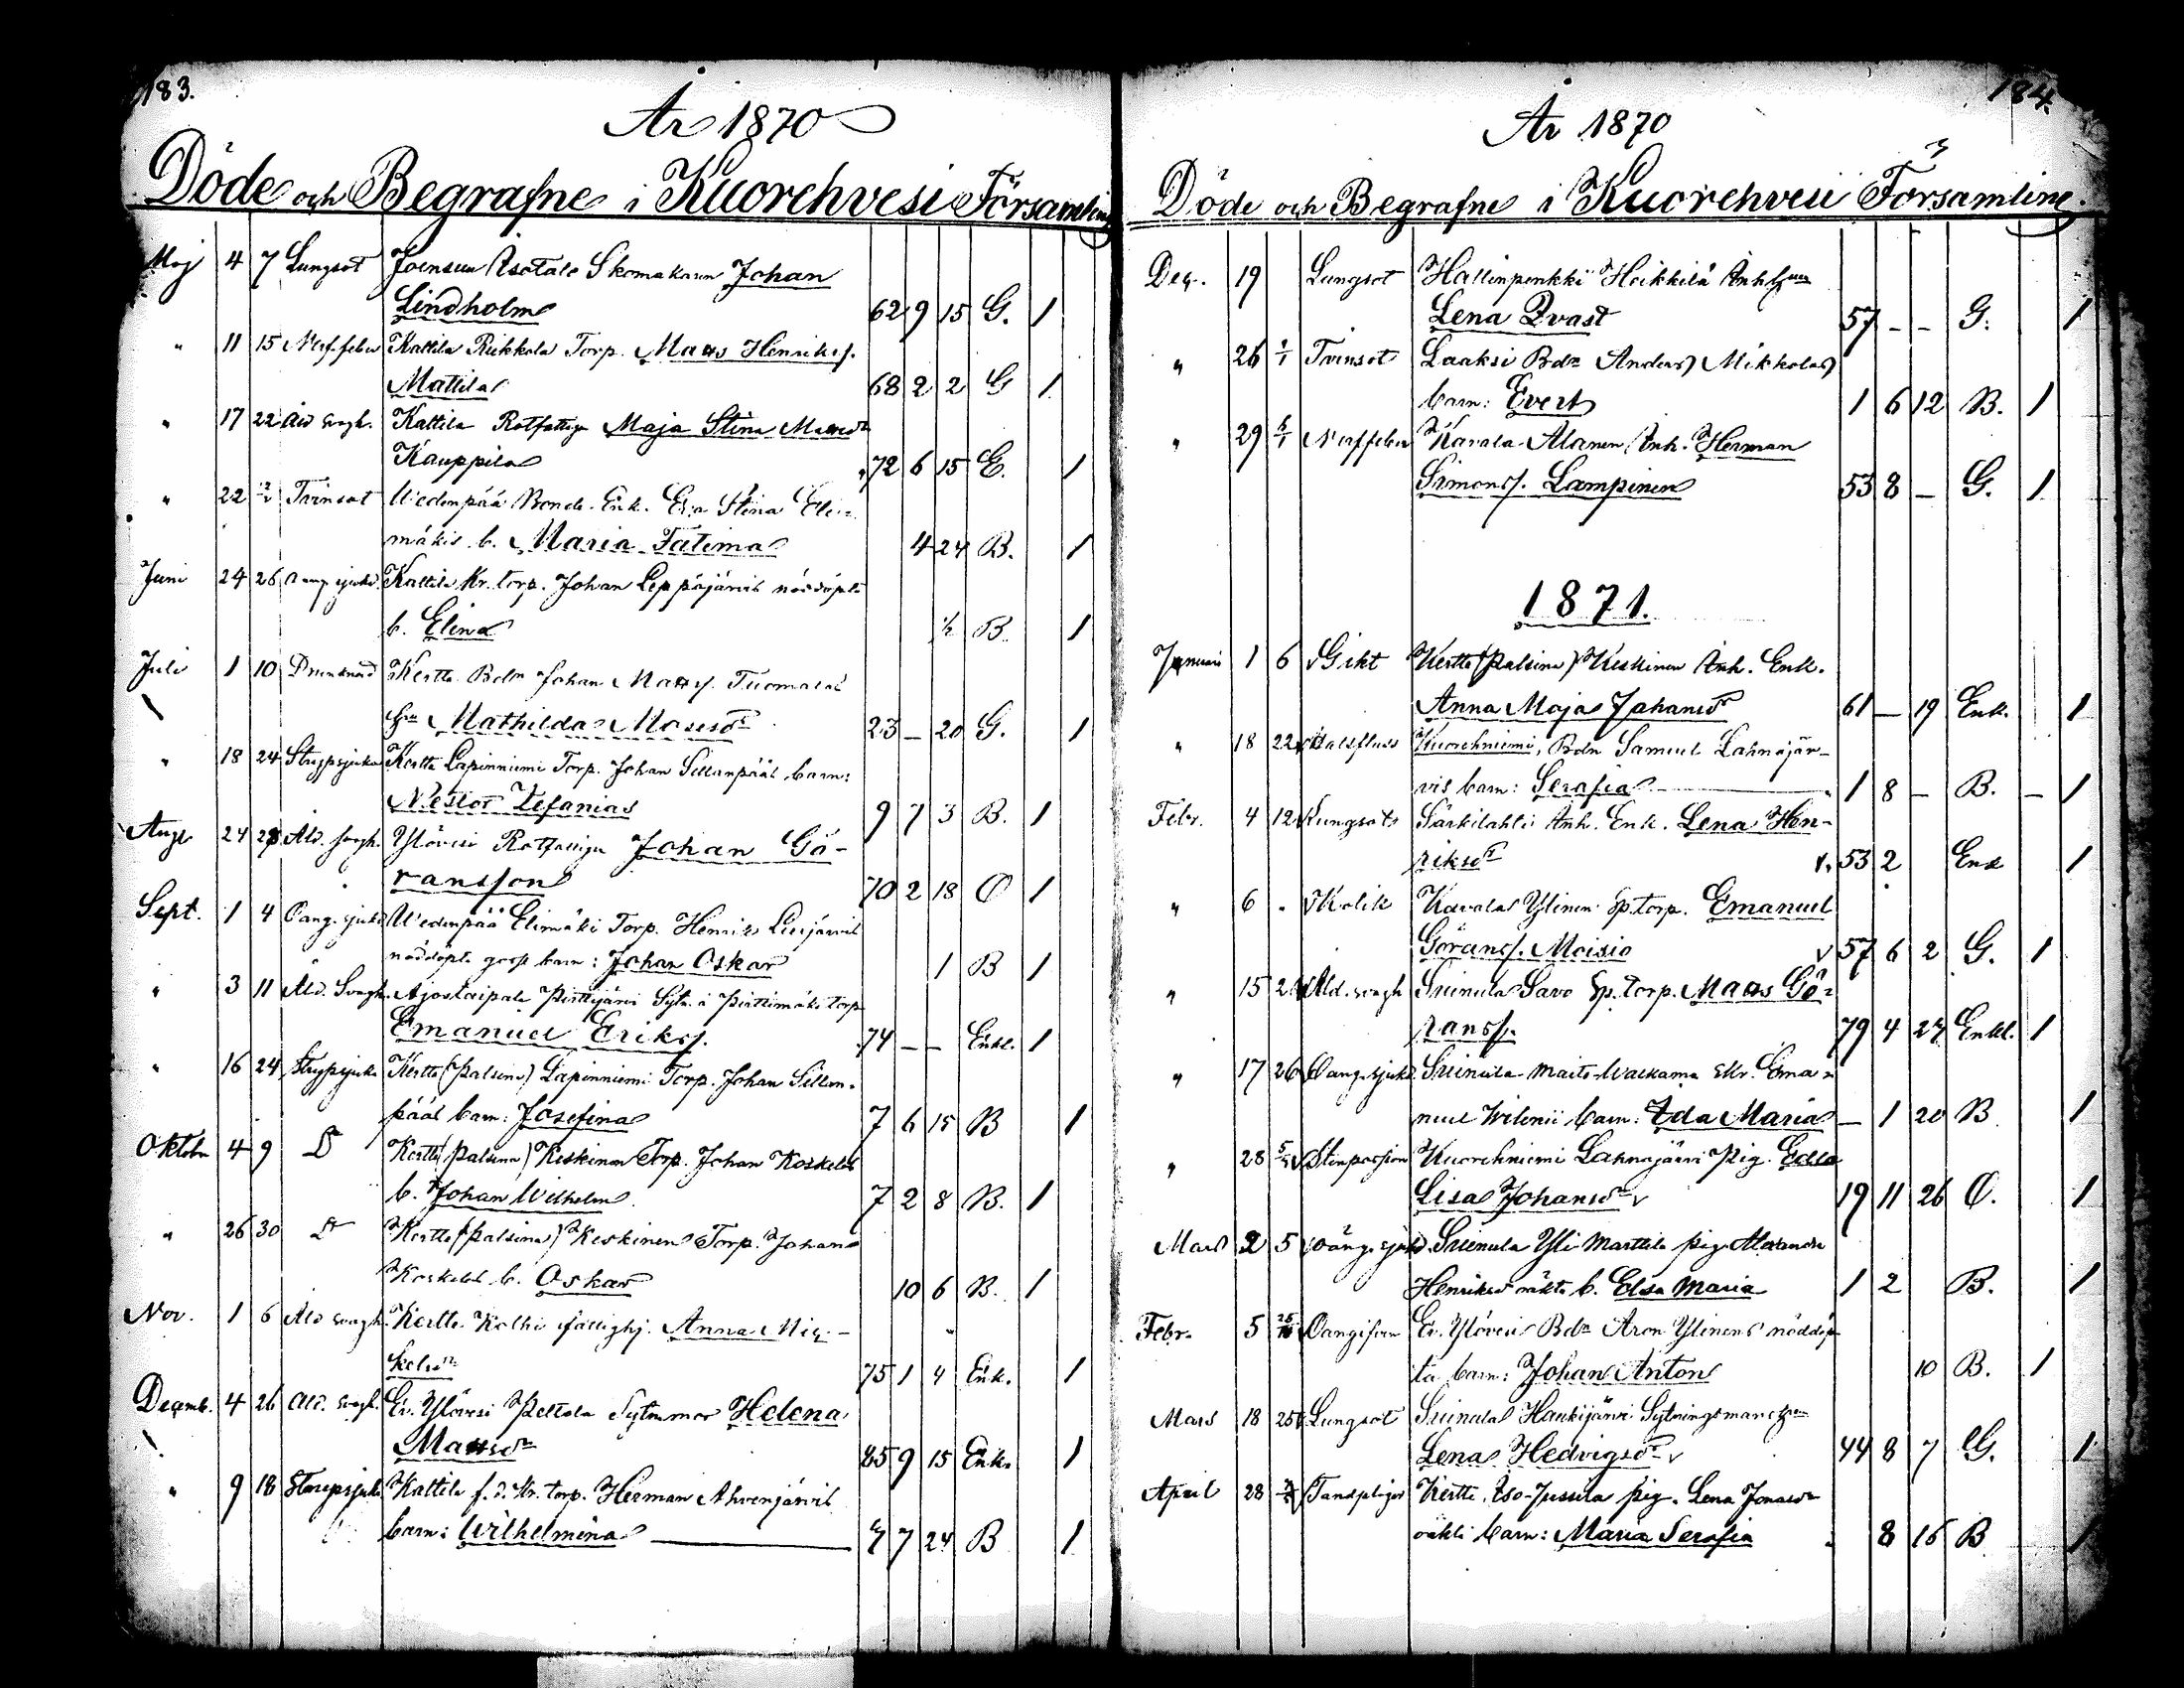 183.
År 1870
Döde och Begrafne i Kuorehvesi Församling
Maj 4 7 Lungsot Joensuu Isotalo Skomakaren Johan
Lindholm 62 9 15 G. 1
" 11 15 Nerffeber Kattila Riekkola Torp. Matts Henriks.
Mattila 68 2 2 G 1
" 17 22 Åld svagh. Kattila Rotfattige Maja Stina Mattsdr
Kauppila 72 6 15 E. 1
" 22 Tvinsot Wedenpää Bonde Enk. Eva Stina Eli-
mäkis b. Maria Fatima 4 24 B. 1
Juni 24 26 Oang sjukd. Kattila Kr. torp. Johan Leppäjärvis nöddöpta
b. Elina 1/2 B. 1
Juli 1 10 Drunknad Kertte Bdn Johan Matts. Tuomalas
hru Mathilda Mattsdr 23 – 20 G. 1
" 18 24 Strypsjuka Kertte Lapinniemi Torp. Johan Sillanpääs barn:
Nestor Zefanias 9 7 3 B. 1
Aug. 24 28 Åld. svagh. Ylövesi Rotfattige Johan Gö-
ransson 70 2 18 O 1
Sept. 1 4 Oang. sjukd Wedenpää Elimäki Torp. Henriks Liesjärvis
nöddöpte gosse barn: Johan Oskar 1 B 1
" 3 11 Åld. Svagh. Ajostaipale Pirttijärvi Sytn. å Pirttimäki torp
Emanuel Eriks. 74 – – Enkl. 1
" 16 24 Strypsjuka Kertte (Palsina) Lapinniemi Torp. Johan Sillan-
pääs barn: Josefina 7 6 15 B 1
Oktober 4 9 Do Kertte (Palsina) Keskinen Torp. Johan Koskelas
b. Johan Wilhelm 7 2 8 B. 1
" 26 30 Do Kertte (Palsina) Keskinen Torp. Johan
Koskelas b. Oskar 10 6 B. 1
Nov. 1 6 Åld svagh. Kertte Kolhi fattighj. Anna Mic-
kelsdr 75 1 4 Enk. 1
Decemb. 4 26 Åld. svagh. Er. Ylövesi Peltola Sytnmor Helena
Mattsdr 85 9 15 Enk. 1
" 9 18 Strupsjuka Kattila f. d. Kr. torp. Herman Ahvenjärvis
barn: Wilhelmina 7 7 24 B 1
184.
År 1870
Döde och Begrafne i Kuorehvesi Församling.
Dec. 19 Lungsot Hallinpenkki Heikkilä Inhhru
Lena Qvast 57 – – G. 1
" 26 1/1 Tvinsot Laaksi Bdn Anders Mikkolas
barn: Evert 1 6 12 B. 1
" 29 6/1 Nerffeber Kavala Alanen Inh. Herman
Simons. Lampinen 53 8 – G. 1
1871.
Januari 1 6 Gikt Kertte (Palsina) Keskinen Inh. Enk.
Anna Maja Johansdr 61 – 19 Enk. 1
" 18 22 Halsfluss Kuorehniemi, Bdn Samuel Lahnajär-
vis barn: Serafia 1 8 – B. – 1
Febr. 4 12 Lungsot Särkilahti Inh. Enk. Lena Hen-
riksdr 53 2 Enk 1
" 6 " Kolik Kavalas Ylinen Sp. torp. Emanuel
Görans. Moisio 57 6 2 G. 1
" 15 Åld. svagh Suinula Savo Sp. torp. Matts Gö-
ranss. 79 4 27 Enkl. 1
" 17 26 Oang. sjukd. Suinula Maito-Walkama Skr. Ema-
nuel Wilenii barn: Ida Maria – 1 20 B 1
" 28 Stenpassion Kuorehniemi Lahnajärvi Pig. Edla
Lisa Johansdr 19 11 26 O. 1
Mars 2 5 Oång. sjukd. Suinula Yli Marttila pig. Alexandra
Henriksdr oäkta b. Elsa Maria 1 2 B. 1
Febr. 5 Oangifven Er. Ylövesi Bdn Aron Ylinens nöddöp-
ta barn: Johan Anton 10 B. 1
Mars 18 25 Lungsot Suinula Haukijärvi Sytningsmanshru
Lena Hedvigsdr 44 8 7 G. 1
April 28 Tandplågor Kertte, Iso-Jussila pig. Lena Jonasdr
oäkta barn: Maria Serafia 8 16 B 1